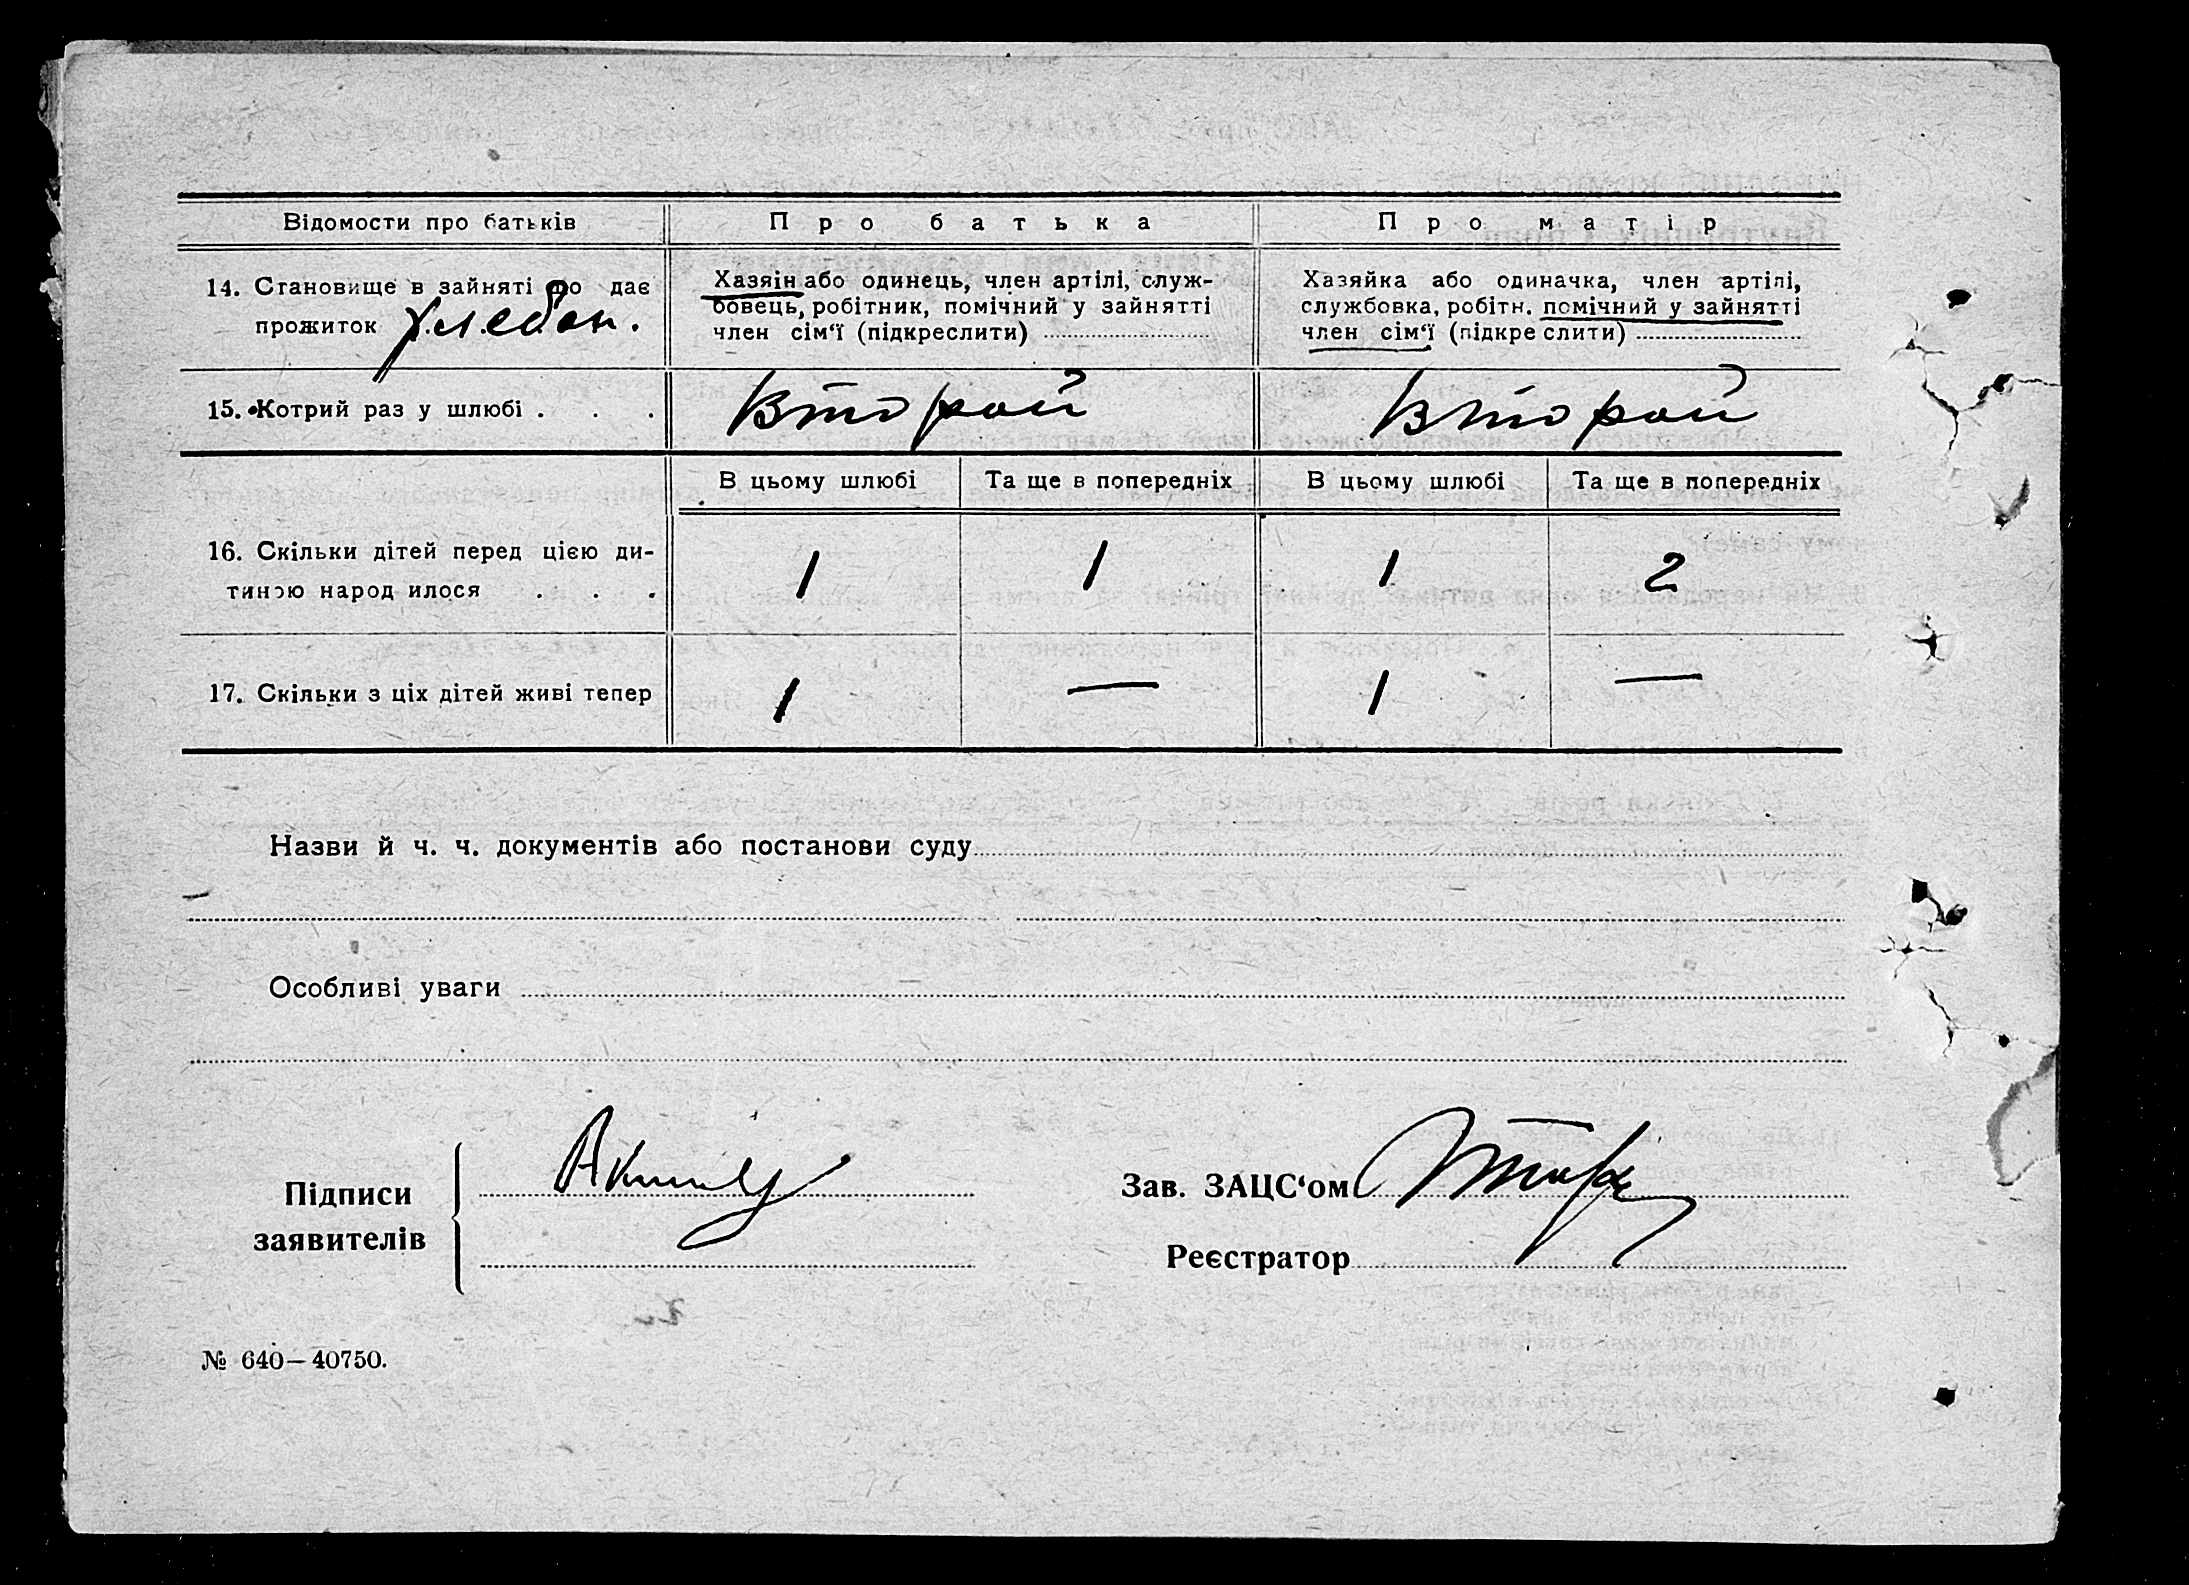 Відомости про батьків Про батька Про матір
14. Становище в зайняті що дає
прожиток Хлебоп.
Хазяін або одинець, член артілі, служ-
бовець, робітник, помічний у зайнятті
член сім'ї (підкреслити)
Хазяйка або одиначка, член артілі,
службовка, робітн. помічний у зайнятті
член сім'ї (підкреслити)
15. Котрий раз у шлюбі . . . Второй Второй
В цьому шлюбі Та ще в попередніх В цьому шлюбі Та ще в попередніх
16. Скільки дітей перед цією ди-
тиною народилося . . . 1 1 1 2
17. Скільки з ціх дітей живі тепер 1 — 1 —
Назви й ч. ч. документів або постанови суду
Особливі уваги
Підписи
заявителів
Зав. ЗАЦС'ом
Реєстратор
№ 640—40750.